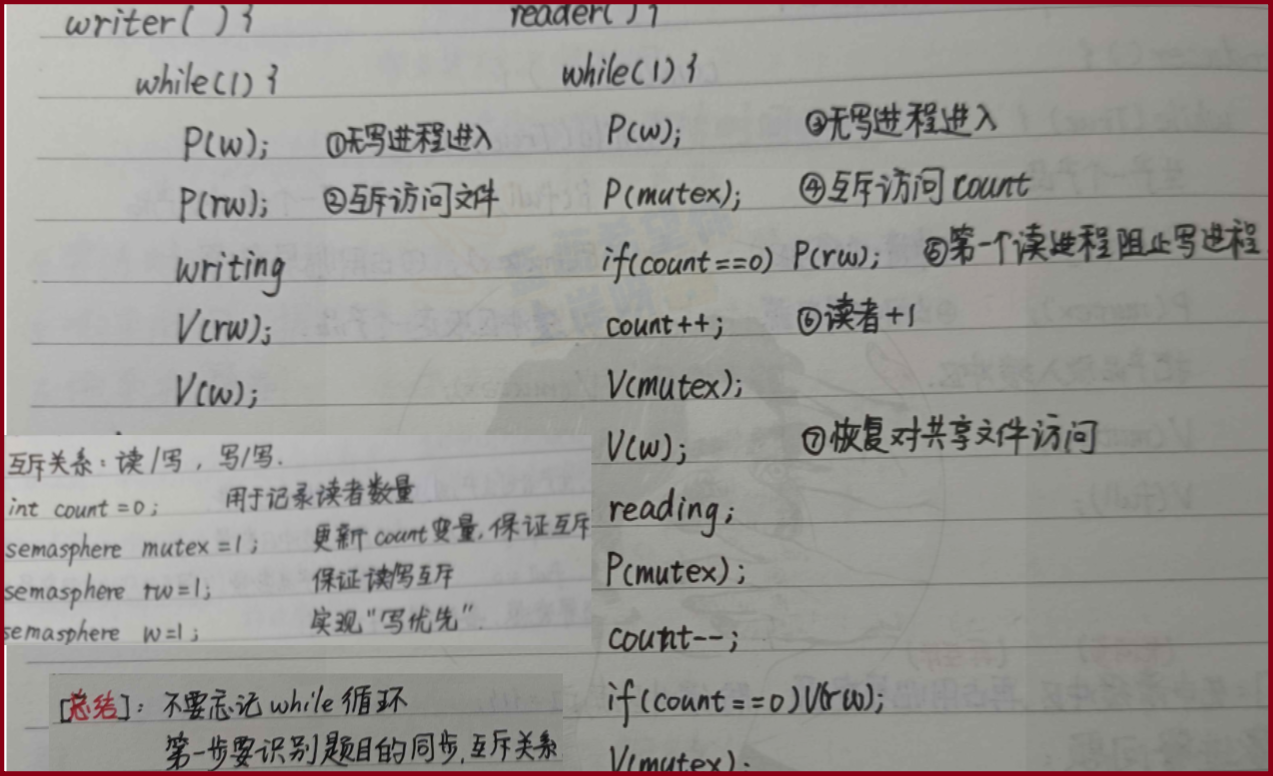 writer( ) {
while(1) {
P(w); ①无写进程进入
P(rw); ②互斥访问文件
writing
V(rw);
V(w);
reader( ) {
while(1) {
P(w); ③无写进程进入
P(mutex); ④互斥访问 count
if(count==0) P(rw); ⑤第一个读进程阻止写进程
count++; ⑥读者+1
V(mutex);
V(w); ⑦恢复对共享文件访问
reading;
P(mutex);
count--;
if(count==0)V(rw);
V(mutex);
互斥关系:读/写,写/写.
int count=0; 用于记录读者数量
semasphere mutex=1; 更新 count 变量,保证互斥
semasphere rw=1; 保证读写互斥
semasphere w=1; 实现"写优先".
[总结]: 不要忘记 while 循环
第一步要识别题目的同步,互斥关系